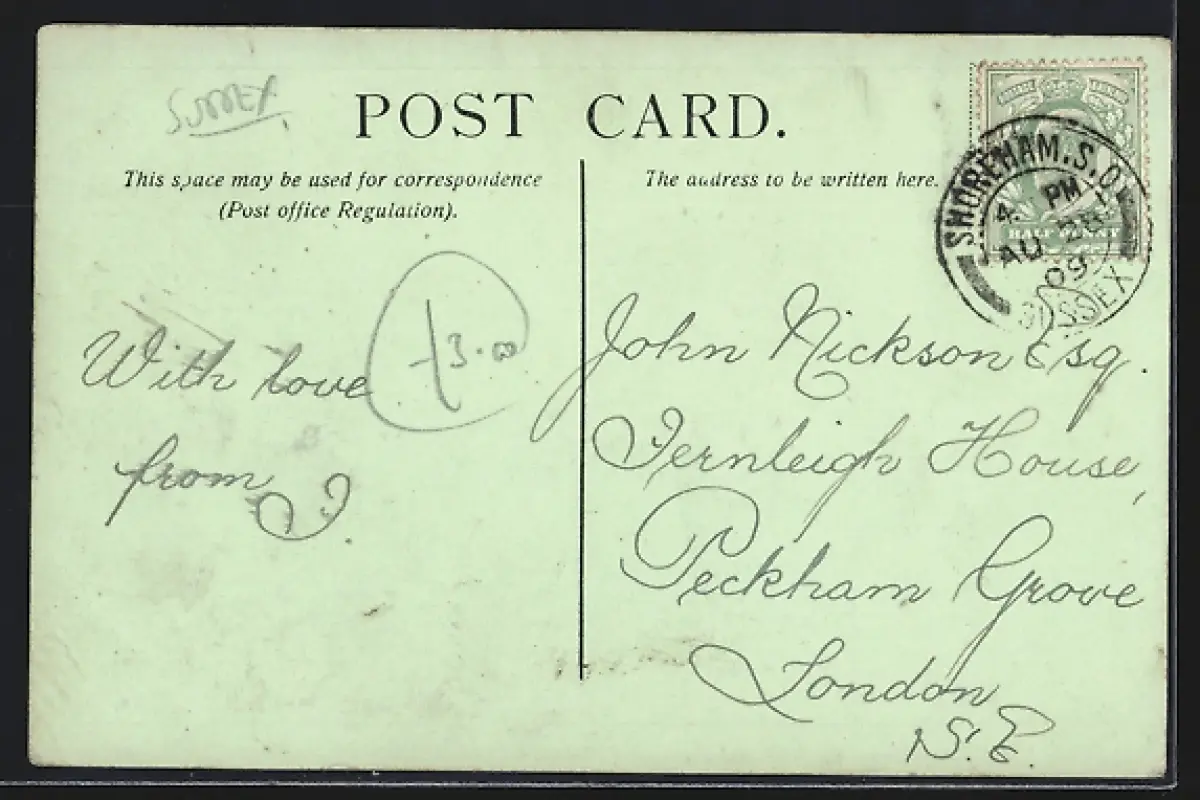 POST CARD.
This space may be used for correspondence
(Post office Regulation).
The address to be written here.
SHOREHAM.S.O.
4. PM
AU
09
SUSSEX
HALF PENNY
With love
from
John Nickson Esq.
Fernleigh House,
Peckham Grove
London
S.E.